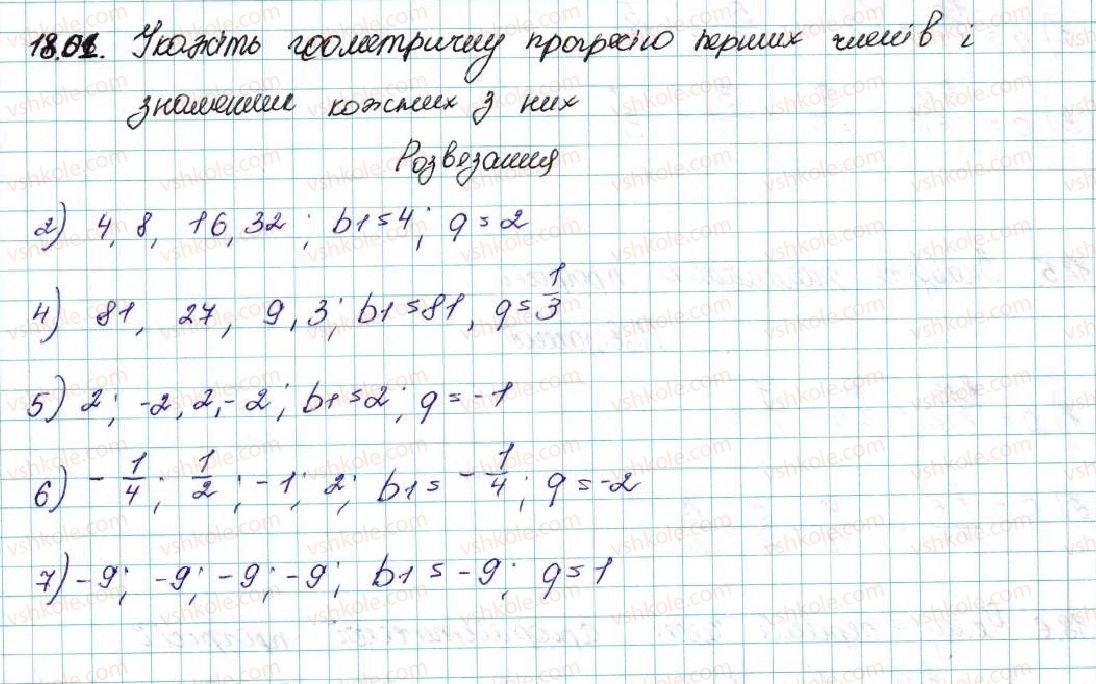 18.01. Укажіть геометричну прогресію перших членів і
знаменник кожних з них
Розвязання
2) 4, 8, 16, 32; b1=4; q=2
4) 81, 27, 9, 3; b1=81, q=1/3
5) 2; -2, 2, -2; b1=2; q=-1
6) -1/4; 1/2; -1; 2; b1=-1/4; q=-2
7) -9; -9; -9; -9; b1=-9; q=1